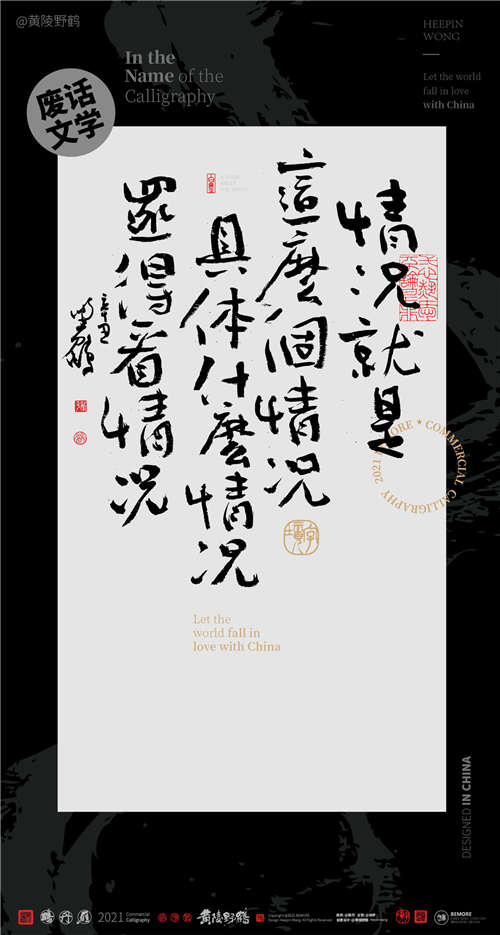 @黄陵野鹤
HEEPIN
WONG
In the
Name of the
Calligraphy
Let the world
fall in love
with China
废话
文学
情况就是
這麼個情况
具体什麽情况
還得看情况
辛丑
野鶴
COMMERCIAL CALLIGRAPHY 2021
Let the
world fall in
love with China
DESIGNED IN CHINA
2021
Commercial
Calligraphy
黄陵野鹤
BEMORE